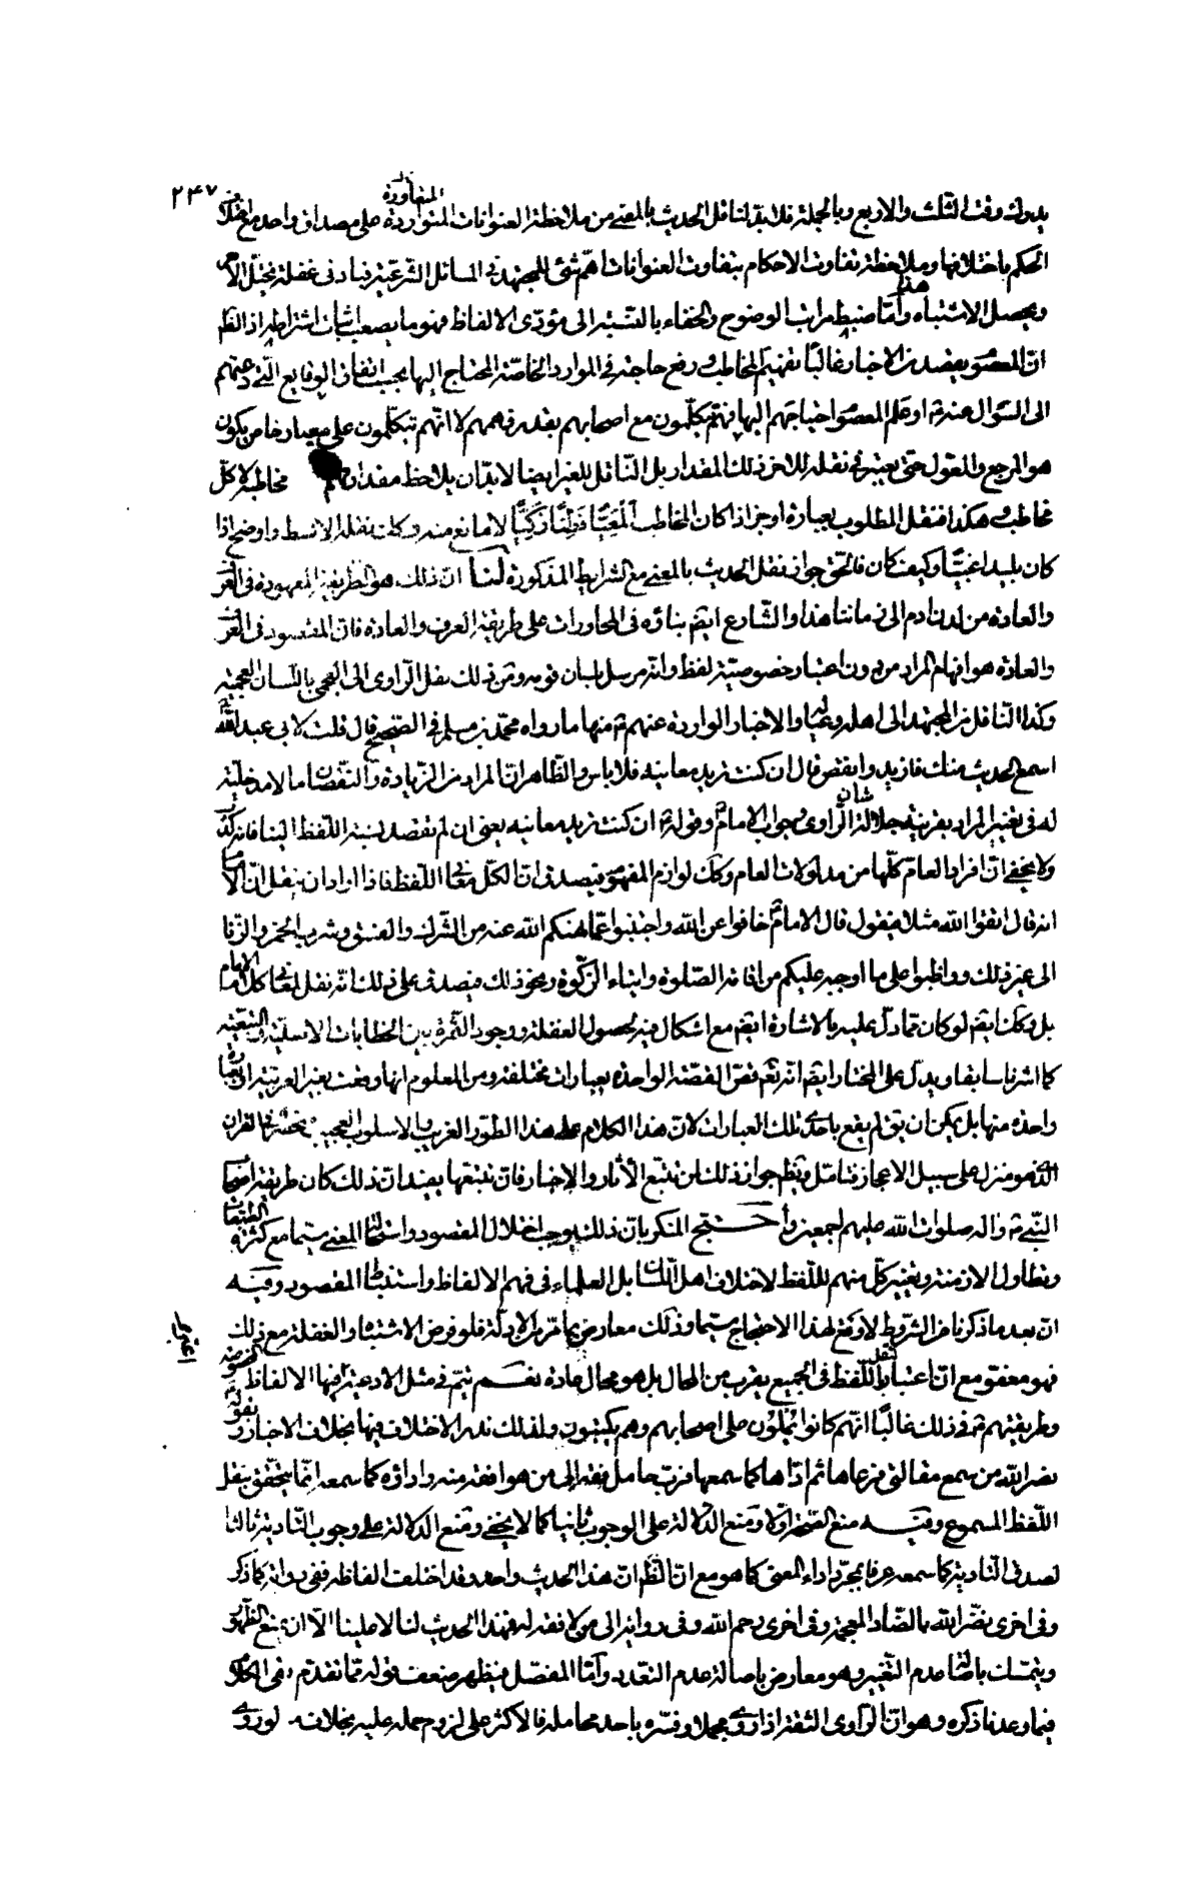 ۲۴۷
يدرك وقت الثلث والاربع وبالجملة فلا بد لناقل الحديث بالمعنى من ملاحظة العنوانات المتواردة المتفاوتة على مصداق واحد مع اختلاف
الحكم باختلافها وملاحظة تفاوت الاحكام بتفاوت العنوانات اهم شئ للمجتهد في المسائل الشرعية فبادنى غفلة يختل الامر
ويحصل الاشتباه هذا وأما ضبط مراتب الوضوح والخفاء بالنسبة الى مؤدى الالفاظ فهو ما يصعب اثبات اشتراطه اذ الظ
ان المعصوم يقصد من الاخبار غالبًا تفهيم المخاطب ورفع حاجته في الموارد الخاصة المحتاج اليها بحسب اتفاق الوقايع التي دعتهم
الى السؤال عنه ع او علم المعصوم احتياجهم اليها فهم يتكلمون مع اصحابهم بقدر فهمهم لا انهم يتكلمون على معيار خاص يكون
هو المرجع والمعول حتى يعتبر في نقله للاخر ذلك المقدار بل الناقل للغير ايضا لا بد ان يلاحظ مقدار فهم مخاطبه لا كل
مخاطب وهكذا فنقل المطلوب بعبارة اوجز اذا كان المخاطب ألمعيًّا فطِنًا زكيًّا لا مانع منه وكك نقله الابسط واوضح اذا
كان بليدا غبيًّا وكيف كان فالحق جواز نقل الحديث بالمعنى مع الشرايط المذكورة لنا ان ذلك هو الطريقة المعهودة في العرف
والعادة من لدن ادم الى زماننا هذا والشارع ايضم بناؤه في المحاورات على طريقة العرف والعادة فان المقصود في العرف
والعادة هو افهام المراد من دون اعتبار خصوصية لفظ وانه مرسل بلسان قومه ومن ذلك نقل الراوى الى العجمي باللسان العجمية
وكذا الناقل من المجتهد الى اهله وعياله والاخبار الواردة عنهم ع منها ما رواه محمد بن مسلم في الصحيح قال قلت لابي عبد الله ع
اسمع الحديث منك فازيد وانقص قال ان كنت تريد معانيه فلا باس والظاهر ان المراد من الزيادة والنقصان ما لا مدخلية
له في تغيير المراد بقرينة جلالة شان الراوى وجواب الامام ع وقوله ع ان كنت تريد معانيه يعني ان لم تقصد نسبة اللفظ الينا فانه كذب
ولا يخفى ان افراد العام كلها من مدلولات العام وكك لوازم المفهوم فيصدق ان الكل معاني اللفظ فاذا اراد ان ينقل ان الامام
انه قال اتقوا الله مثلا فيقول قال الامام ع خافوا عن الله واجتنبوا عما نهيكم الله عنه من الشرك والفسق وشرب الخمر والزنا
الى غير ذلك وواظبوا على ما اوجبه عليكم من اقامة الصلوة وايتاء الزكوة ونحو ذلك فيصدق على ذلك انه نقل لمعاني كلام الامام
بل وكك ايضم لو كان مما دل عليه بالاشارة ايضم مع اشكال فيه لحصول الغفلة ووجود الثمرة بين الخطابات الاصلية والتبعية
كما اشرنا سابقا ويدل على المختار ايضم انه تعم نص القصة الواحدة بعبارات مختلفة ومن المعلوم انها وقعت بغير العربية او بعبارة
واحدة منها بل يمكن ان يقم لم يقع باحدى تلك العبارات لان هذا الكلام على هذا الطور الغريب والاسلوب العجيب مختص بالقران
الذي هو منزل على سبيل الاعجاز فتامل ويظهر جواز ذلك من تتبع الآثار والاخبار فان تتبعها يفيد ان ذلك كان طريقة اصحاب
النبي ص واله صلوات الله عليهم اجمعين واحتج المنكر بان ذلك يوجب اخلال المقصود واستحالة المعنى سيما مع كثرة الطبقات
وتطاول الازمنة وتغيير كل منهم للفظ لاختلاف اهل اللسان بل العلماء في فهم الالفاظ واستنباط المقصود وفيه
ان بعد ما ذكرنا من الشروط لا وقع لهذا الاحتجاج سيما وذلك معارض بما مر من الادلة فلو فرض الاشتباه والغفلة مع ذلك
فهو معفو مع ان اعتبار نقل اللفظ في الجميع يقرب من المحال بل هو محال عادة نعم يتم في مثل الادعية
وطريقتهم ع في ذلك غالبًا انهم كانوا يُملُون على اصحابهم وهم يكتبون ولذلك ندر الاختلاف فيها بخلاف الاخبار وبقوله ص
نصر الله من سمع مقالتي فوعاها ثم ادّاها كما سمعها فرب حامل فقه الى من هو افقه منه واداؤه كما سمعه انما يتحقق بنقل
اللفظ المسموع وفيه منع الصحة اولا ومنع الدلالة على الوجوب ثانيا كما لا يخفى ومنع الدلالة على وجوب التادية ثالثا
لصدق التادية كما سمعه عرفا بمجرد اداء المعنى كما هو مع ان الظ ان هذا الحديث واحد وقد اختلف الفاظه ففي رواية كما ذكر
وفي اخرى نضر الله بالضاد المعجمة وفي اخرى رحم الله وفي رواية الى من لا فقه له فهذا الحديث لنا لا علينا الا ان يمنع الظهور
ويتمسك باصالة عدم التغيير وهو معارض باصالة عدم التعدد وأما المفصل فيظهر ضعف قوله مما تقدم بقي الكلام
فيما وعدنا ذكره وهو ان الراوى الثقة اذا روى مجملا وفسره باحد محامله فالاكثر على لزوم حمله عليه بخلاف لو روى